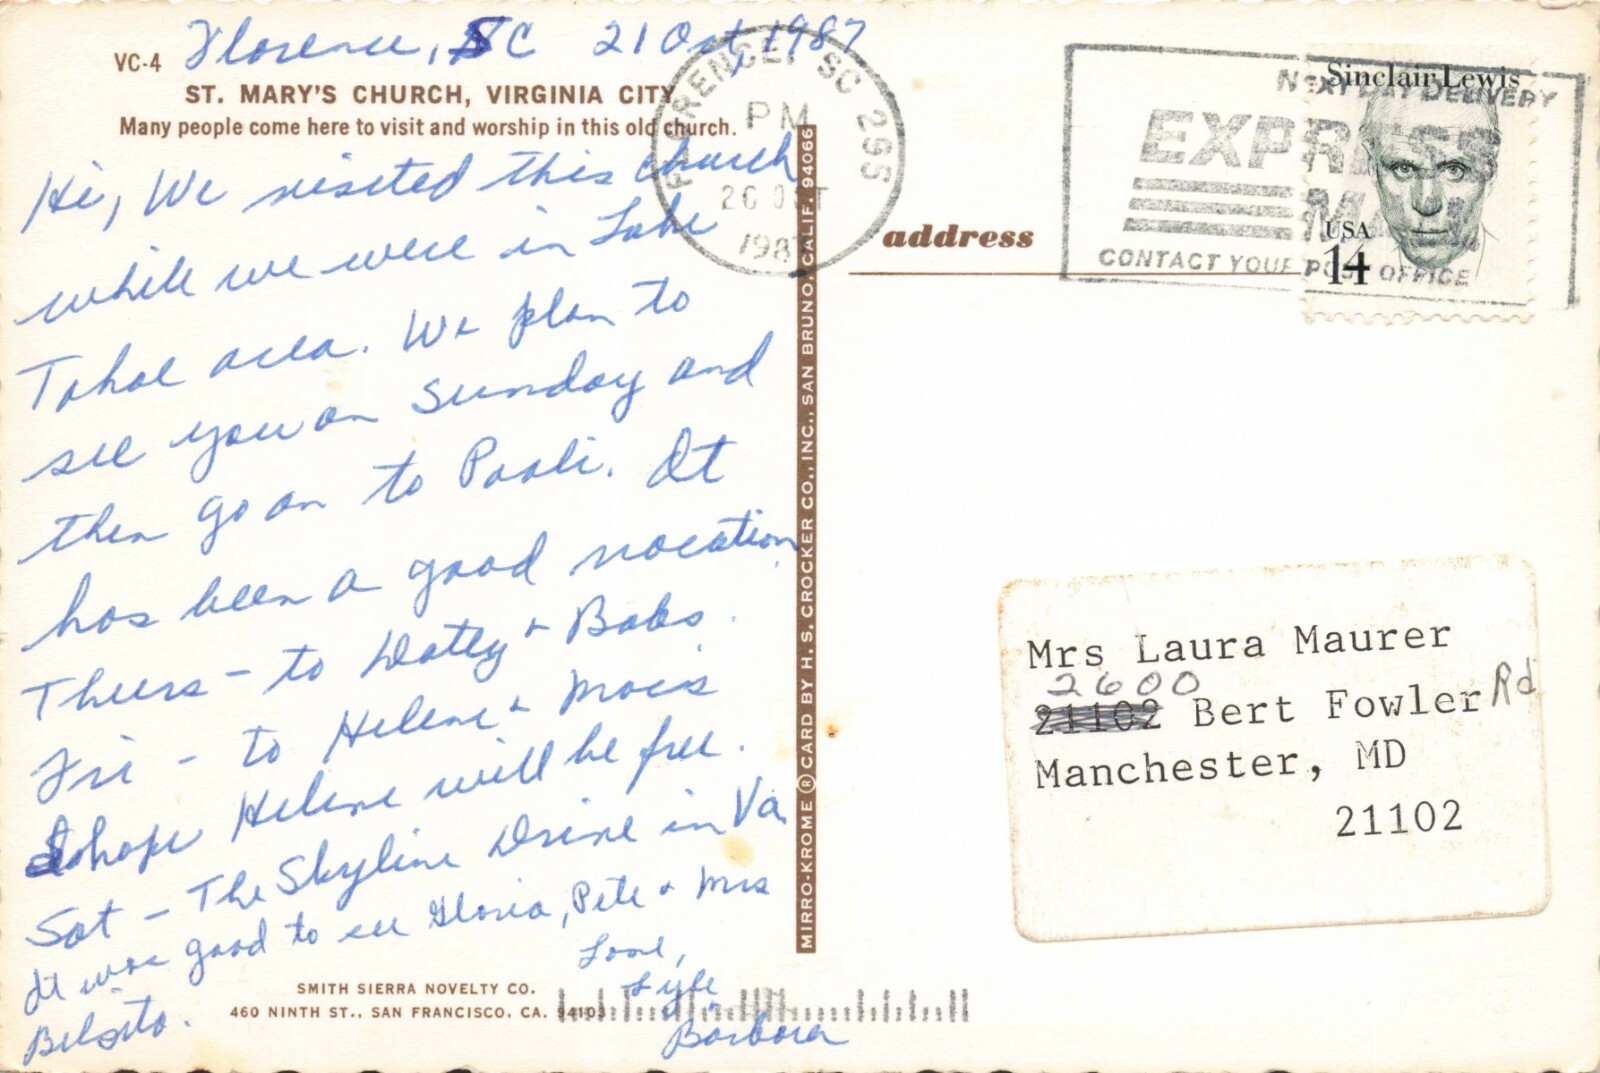 Florence, SC 21 Oct, 1987
VC-4
ST. MARY'S CHURCH, VIRGINIA CITY
Many people come here to visit and worship in this old church.
Hi, We visited this church
while we were in Lake
Tahoe area. We plan to
see you on Sunday and
then go on to Paoli. It
has been a good vacation.
Thurs - to Watley + Babs.
Fri - to Helene + Moe's
I hope Helene will be free.
Sat - The Skyline Drive in Va.
It was good to see Gloria, Pete + Mrs
Belsito.
Love,
Lyle
+
Barbara
SMITH SIERRA NOVELTY CO.
460 NINTH ST., SAN FRANCISCO, CA. 94103
MIRRO-KROME ® CARD BY H. S. CROCKER CO., INC., SAN BRUNO, CALIF. 94066
FLORENCE, SC 295
PM
26 OCT
1987
address
NEXT DAY DELIVERY
EXPRESS
MAIL
CONTACT YOUR POST OFFICE
Sinclair Lewis
USA
14
Mrs Laura Maurer
2600
21102 Bert Fowler Rd
Manchester, MD
21102